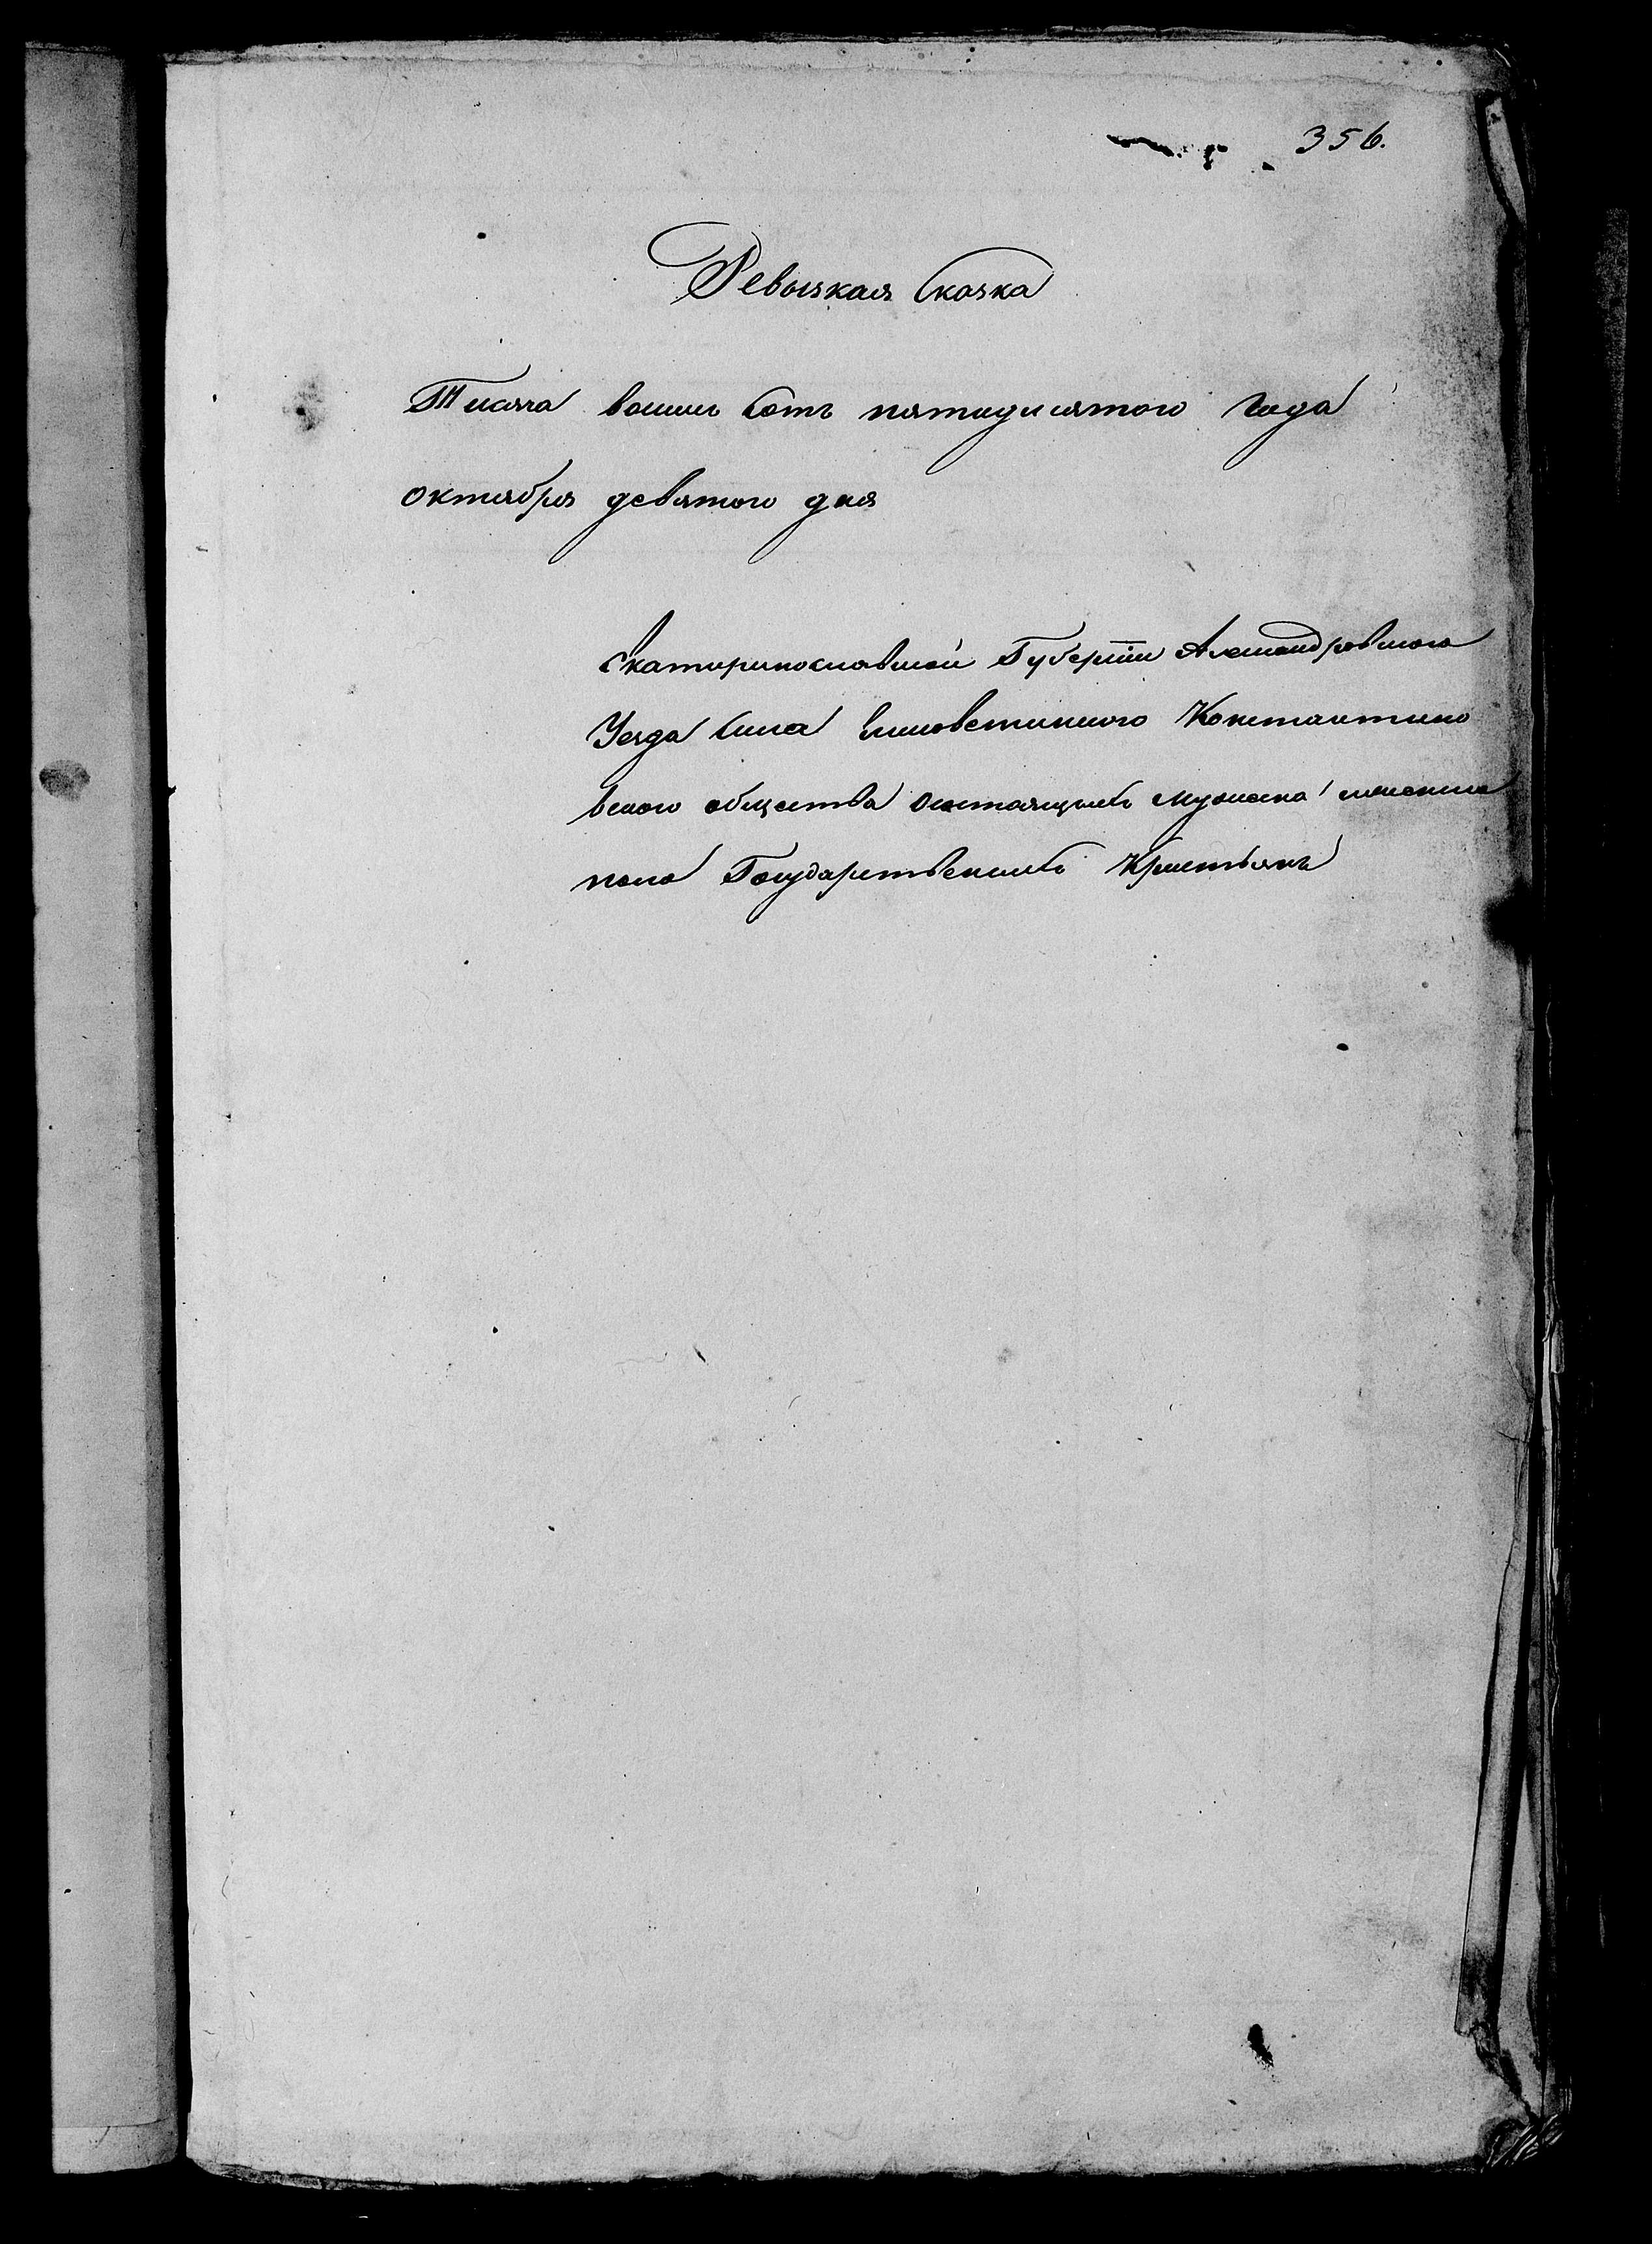 356.
Ревызкая Сказка
Тисяча восим Сотъ пятидисятого Года
октября девятого дня
Екатиринославской Губернiи Александровского
Уезда Села Константино
вского общества состаящихъ мужеска
пола Государственихъ Кристьянъ